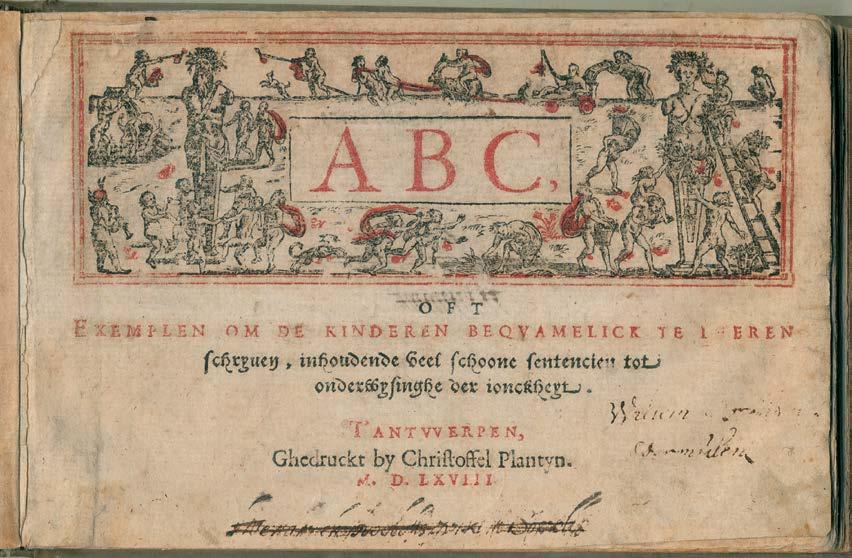 ABC,
OFT
EXEMPLEN OM DE KINDEREN BEQVAMELICK TE LEEREN
schryuen, inhoudende veel schoone sentencien tot
onderwysinghe der ionckheyt.
T'ANTVVERPEN,
Ghedruckt by Christoffel Plantyn.
M. D. LXVIII